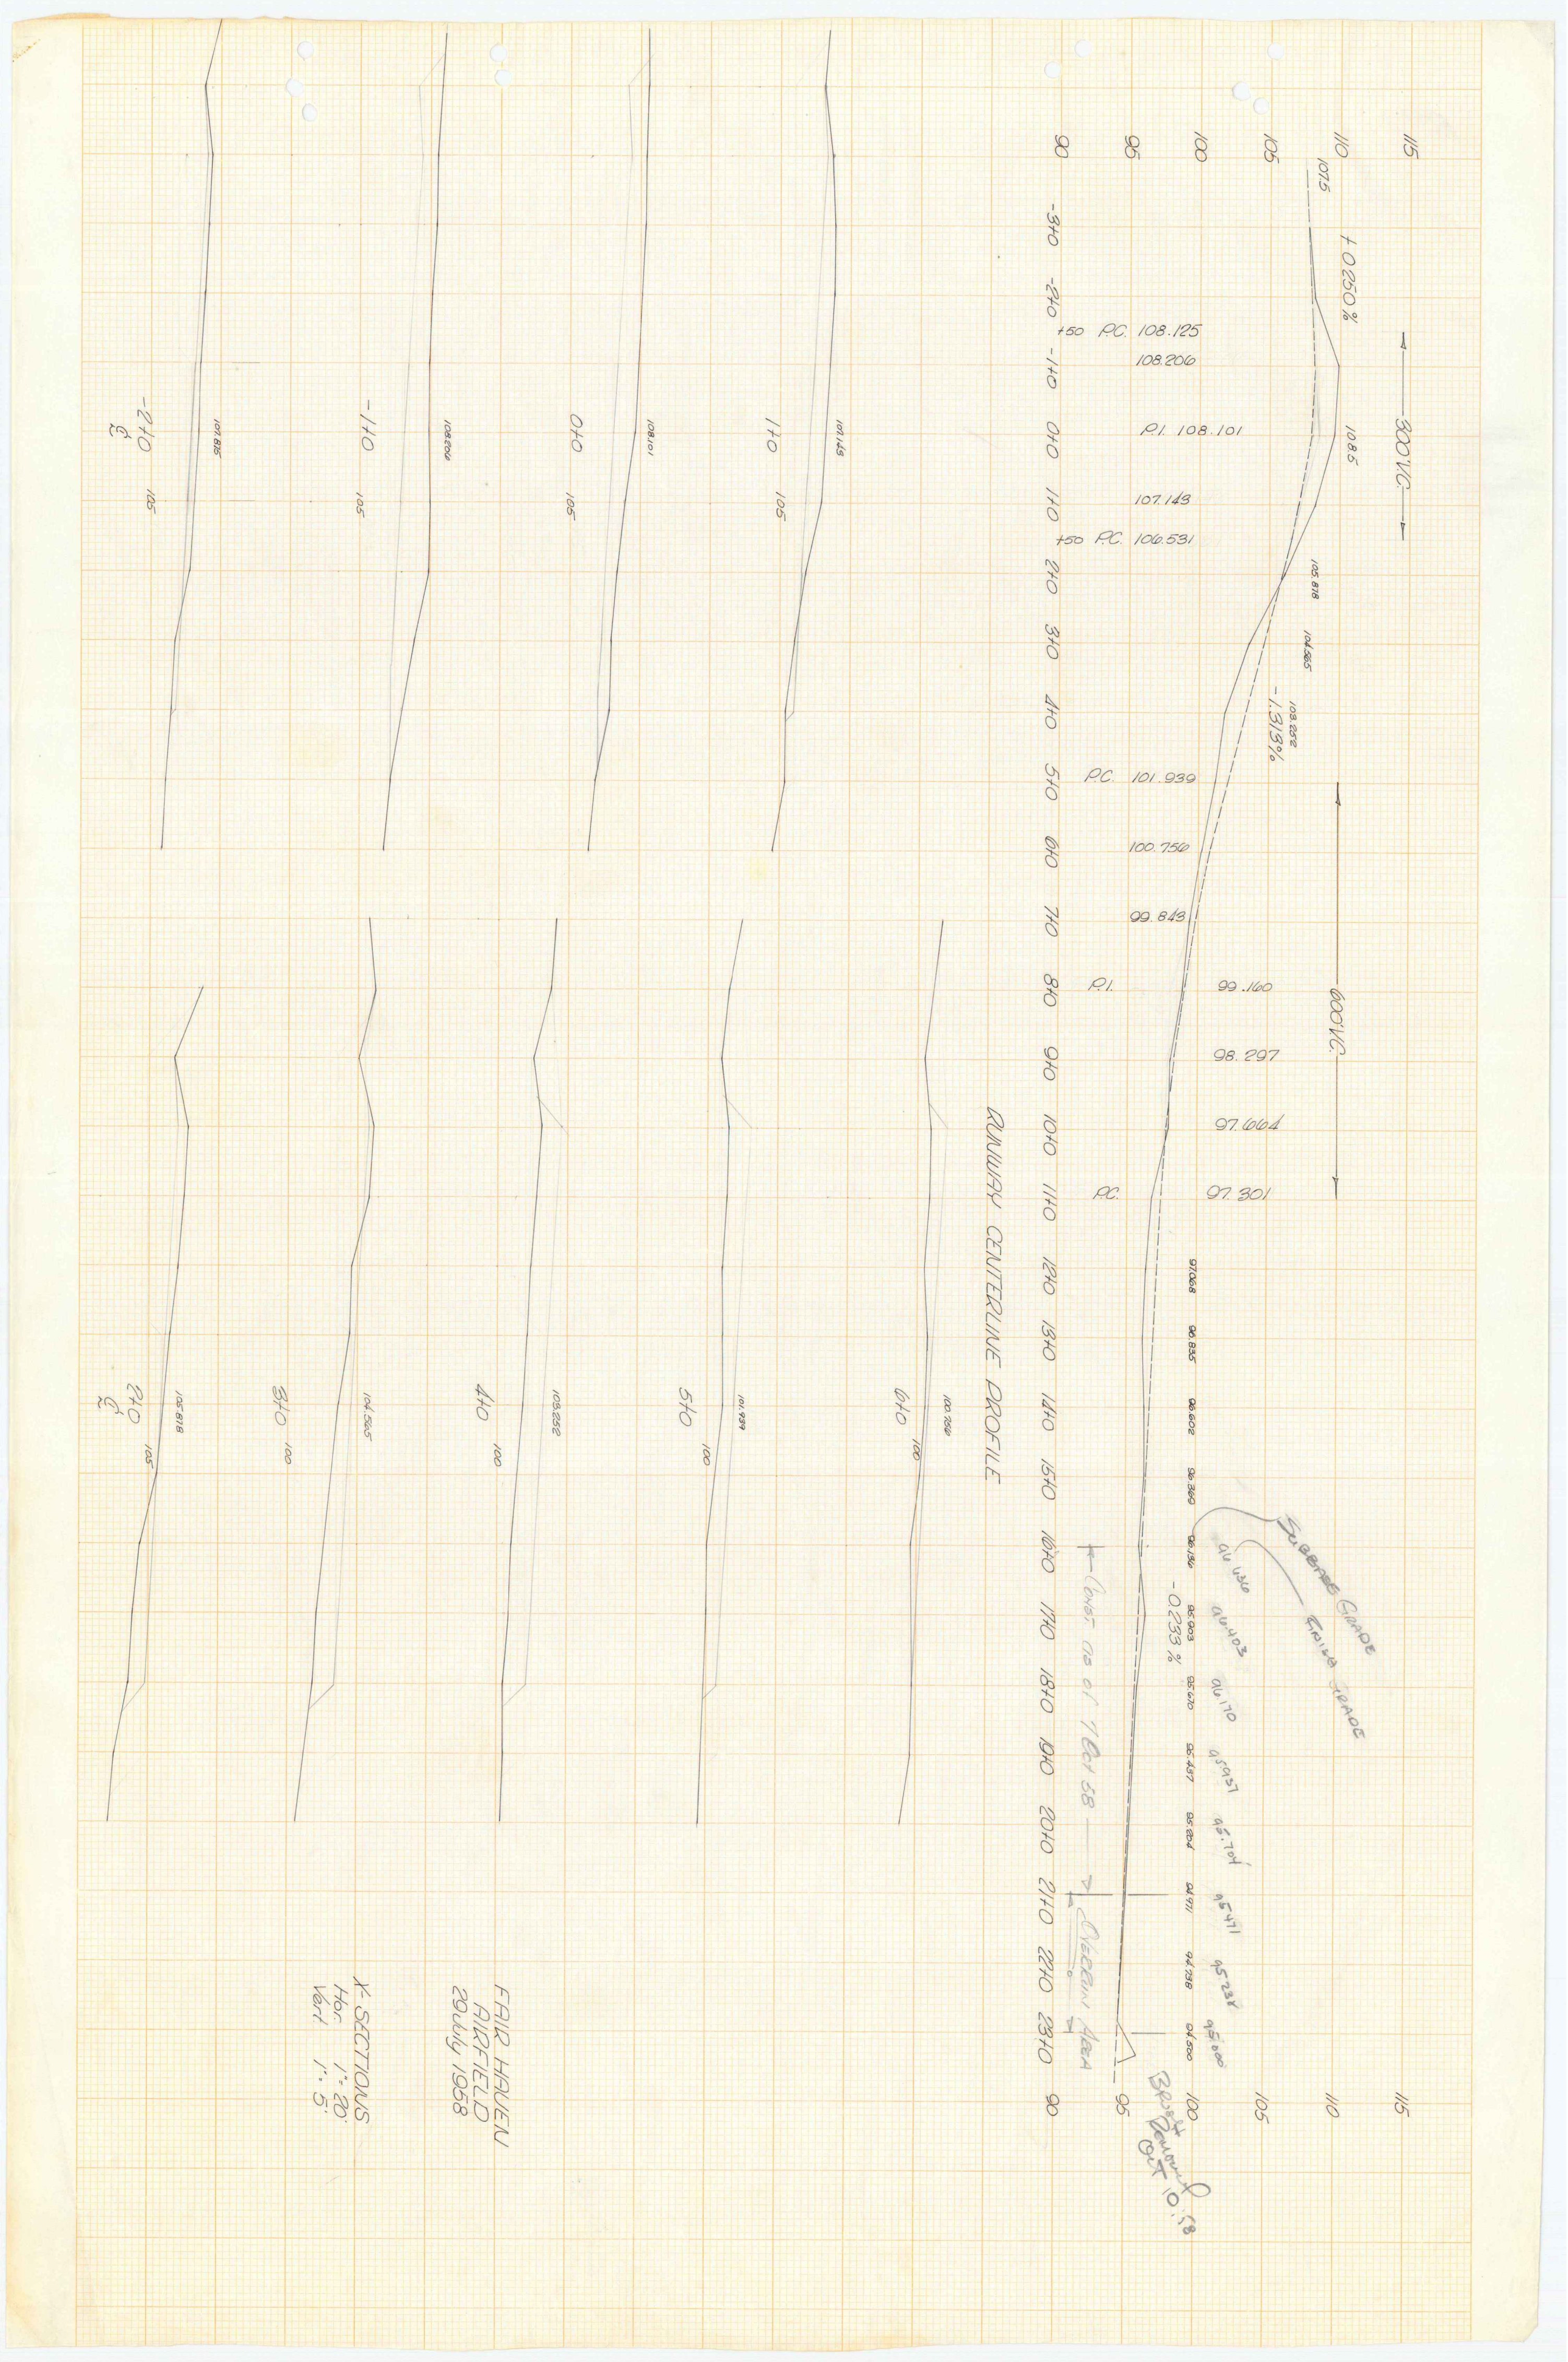 115
110
105
100
95
90
107.5
+0.250%
300'V.C.
108.5
105.878
104.565
103.252
-1.313%
600'V.C.
+50 P.C. 108.125
108.206
P.I. 108.101
107.143
+50 P.C. 106.531
P.C. 101.939
100.756
99.843
P.I. 99.160
98.297
97.664
P.C. 97.301
97.068
96.835
96.602
96.369
96.136
95.903
95.670
95.437
95.204
94.971
94.738
94.500
-0.233%
SUBBASE GRADE
FINISH GRADE
96.636
96.403
96.170
95.937
95.704
95.471
95.238
95.000
Const. as of 7 Oct 58
OVERRUN AREA
115
110
105
100
95
90
-3+0
-2+0
-1+0
0+0
1+0
2+0
3+0
4+0
5+0
6+0
7+0
8+0
9+0
10+0
11+0
12+0
13+0
14+0
15+0
16+0
17+0
18+0
19+0
20+0
21+0
22+0
23+0
RUNWAY CENTERLINE PROFILE
107.143
1+0
105
108.101
0+0
105
108.206
-1+0
105
107.875
-2+0
105
100.756
6+0
100
101.939
5+0
100
103.252
4+0
100
104.565
3+0
100
105.878
2+0
105
FAIR HAVEN
AIRFIELD
29 July 1958
X-SECTIONS
Hor. 1"= 20'
Vert 1"= 5'